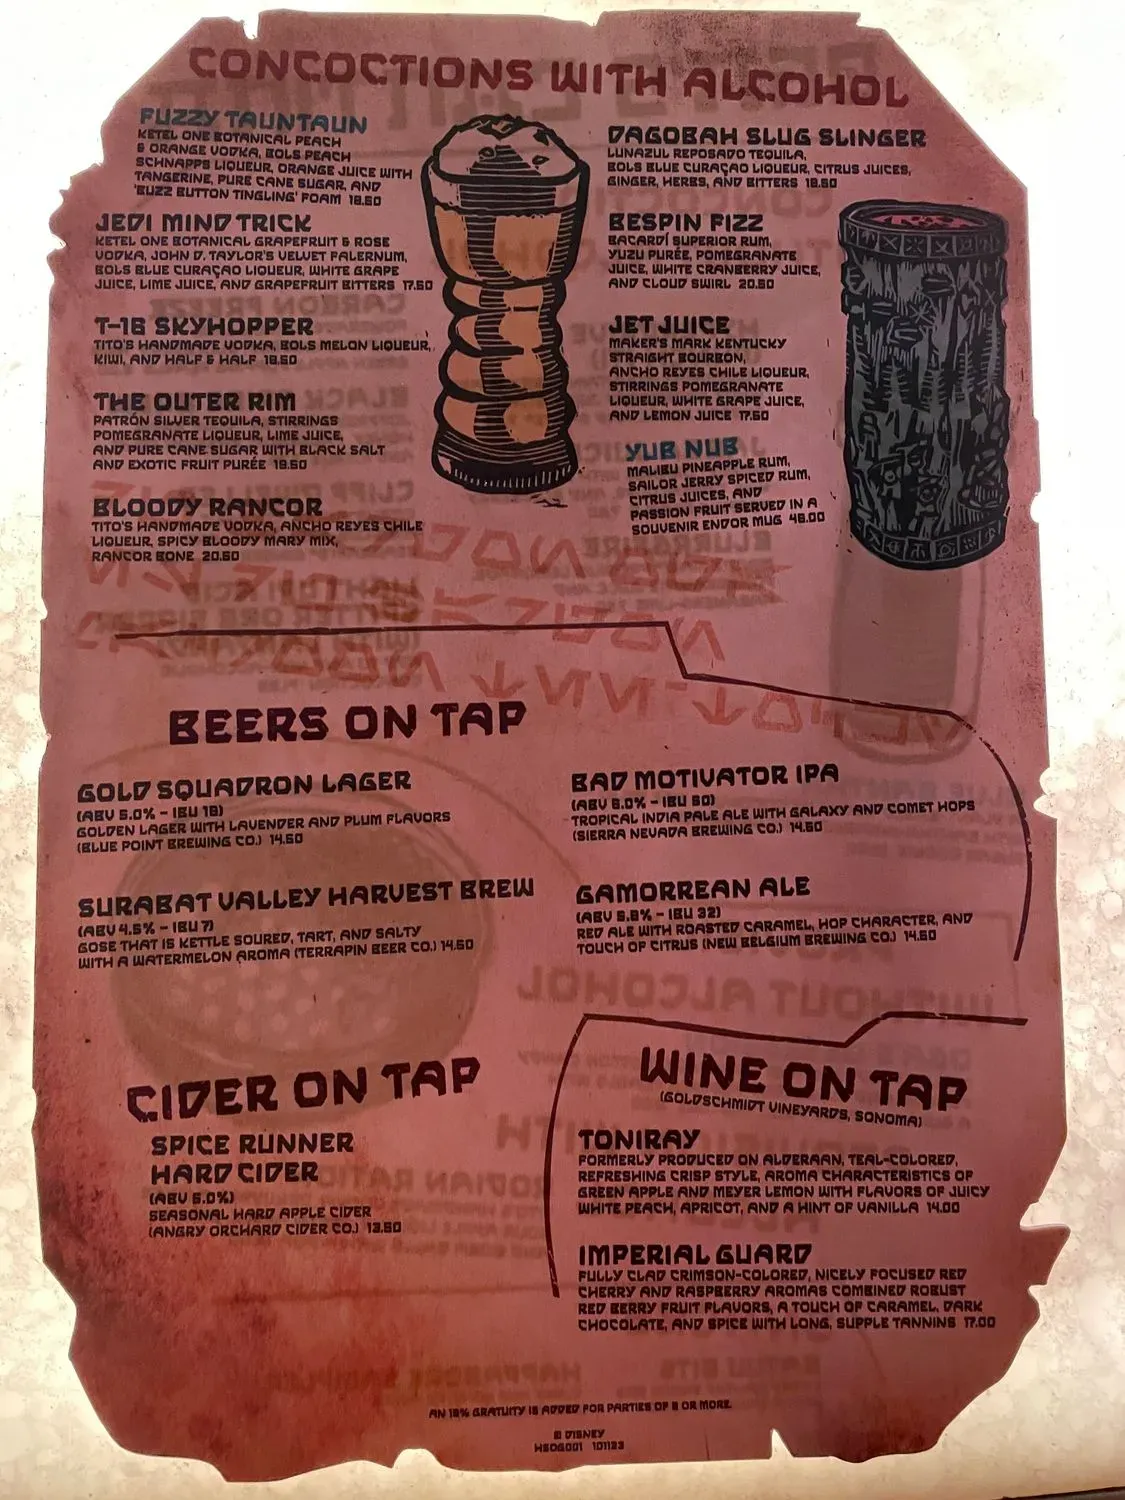 CONCOCTIONS WITH ALCOHOL
FUZZY TAUNTAUN
KETEL ONE BOTANICAL PEACH
& ORANGE VODKA, BOLS PEACH
SCHNAPPS LIQUEUR, ORANGE JUICE WITH
TANGERINE, PURE CANE SUGAR, AND
'BUZZ BUTTON TINGLING' FOAM 18.50
JEDI MIND TRICK
KETEL ONE BOTANICAL GRAPEFRUIT & ROSE
VODKA, JOHN D. TAYLOR'S VELVET FALERNUM,
BOLS BLUE CURAÇAO LIQUEUR, WHITE GRAPE
JUICE, LIME JUICE, AND GRAPEFRUIT BITTERS 17.50
T-16 SKYHOPPER
TITO'S HANDMADE VODKA, BOLS MELON LIQUEUR,
KIWI, AND HALF & HALF 18.50
THE OUTER RIM
PATRÓN SILVER TEQUILA, STIRRINGS
POMEGRANATE LIQUEUR, LIME JUICE,
AND PURE CANE SUGAR WITH BLACK SALT
AND EXOTIC FRUIT PURÉE 19.50
BLOODY RANCOR
TITO'S HANDMADE VODKA, ANCHO REYES CHILE
LIQUEUR, SPICY BLOODY MARY MIX,
RANCOR BONE 20.50
DAGOBAH SLUG SLINGER
LUNAZUL REPOSADO TEQUILA,
BOLS BLUE CURAÇAO LIQUEUR, CITRUS JUICES,
GINGER, HERBS, AND BITTERS 18.50
BESPIN FIZZ
BACARDÍ SUPERIOR RUM,
YUZU PURÉE, POMEGRANATE
JUICE, WHITE CRANBERRY JUICE,
AND CLOUD SWIRL 20.50
JET JUICE
MAKER'S MARK KENTUCKY
STRAIGHT BOURBON,
ANCHO REYES CHILE LIQUEUR,
STIRRINGS POMEGRANATE
LIQUEUR, WHITE GRAPE JUICE,
AND LEMON JUICE 17.50
YUB NUB
MALIBU PINEAPPLE RUM,
SAILOR JERRY SPICED RUM,
CITRUS JUICES, AND
PASSION FRUIT SERVED IN A
SOUVENIR ENDOR MUG 48.00
BEERS ON TAP
GOLD SQUADRON LAGER
(ABV 5.0% - IBU 18)
GOLDEN LAGER WITH LAVENDER AND PLUM FLAVORS
(BLUE POINT BREWING CO.) 14.50
SURABAT VALLEY HARVEST BREW
(ABV 4.5% - IBU 7)
GOSE THAT IS KETTLE SOURED, TART, AND SALTY
WITH A WATERMELON AROMA (TERRAPIN BEER CO.) 14.50
BAD MOTIVATOR IPA
(ABV 6.0% - IBU 50)
TROPICAL INDIA PALE ALE WITH GALAXY AND COMET HOPS
(SIERRA NEVADA BREWING CO.) 14.50
GAMORREAN ALE
(ABV 5.8% - IBU 32)
RED ALE WITH ROASTED CARAMEL, HOP CHARACTER, AND
TOUCH OF CITRUS (NEW BELGIUM BREWING CO.) 14.50
CIDER ON TAP
SPICE RUNNER
HARD CIDER
(ABV 5.0%)
SEASONAL HARD APPLE CIDER
(ANGRY ORCHARD CIDER CO.) 13.50
WINE ON TAP
(GOLDSCHMIDT VINEYARDS, SONOMA)
TONIRAY
FORMERLY PRODUCED ON ALDERAAN, TEAL-COLORED,
REFRESHING CRISP STYLE, AROMA CHARACTERISTICS OF
GREEN APPLE AND MEYER LEMON WITH FLAVORS OF JUICY
WHITE PEACH, APRICOT, AND A HINT OF VANILLA 14.00
IMPERIAL GUARD
FULLY CLAD CRIMSON-COLORED, NICELY FOCUSED RED
CHERRY AND RASPBERRY AROMAS COMBINED ROBUST
RED BERRY FRUIT FLAVORS, A TOUCH OF CARAMEL, DARK
CHOCOLATE, AND SPICE WITH LONG, SUPPLE TANNINS 17.00
AN 18% GRATUITY IS ADDED FOR PARTIES OF 8 OR MORE.
© DISNEY
HS06001 101123